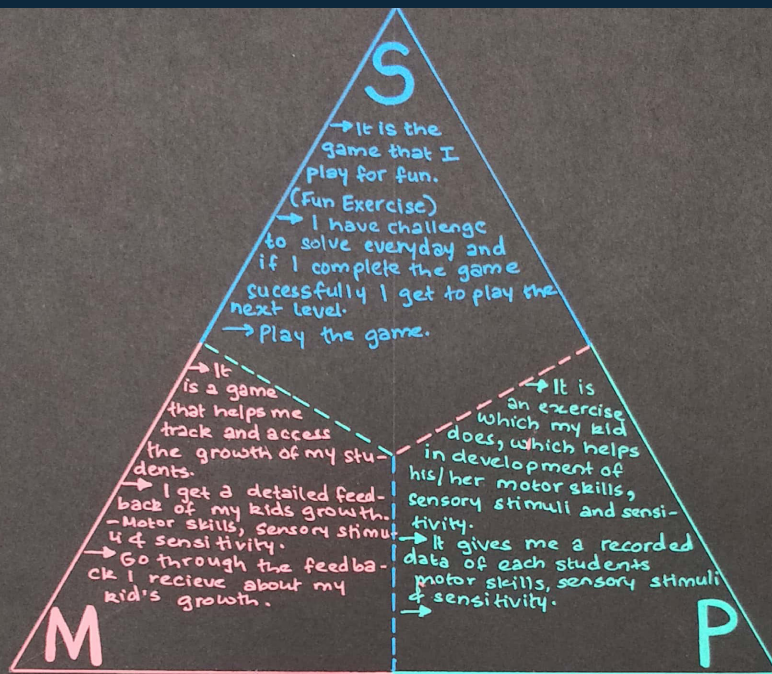 S
→It is the
game that I
play for fun.
(Fun Exercise)
→ I have challenge
to solve everyday and
if I complete the game
sucessfully I get to play the
next level.
→ Play the game.
→ It
is a game
that helps me
track and access
the growth of my stu-
dents.
→ I get a detailed feed-
back of my kids growth.
-Motor skills, sensory stimu
li & sensitivity.
→ Go through the feedba-
ck I recieve about my
kid's growth.
M
→ It is
an exercise
which my kid
does, which helps
in development of
his/her motor skills,
sensory stimuli and sensi-
tivity.
→ It gives me a recorded
data of each students
motor skills, sensory stimuli
& sensitivity.
→
P